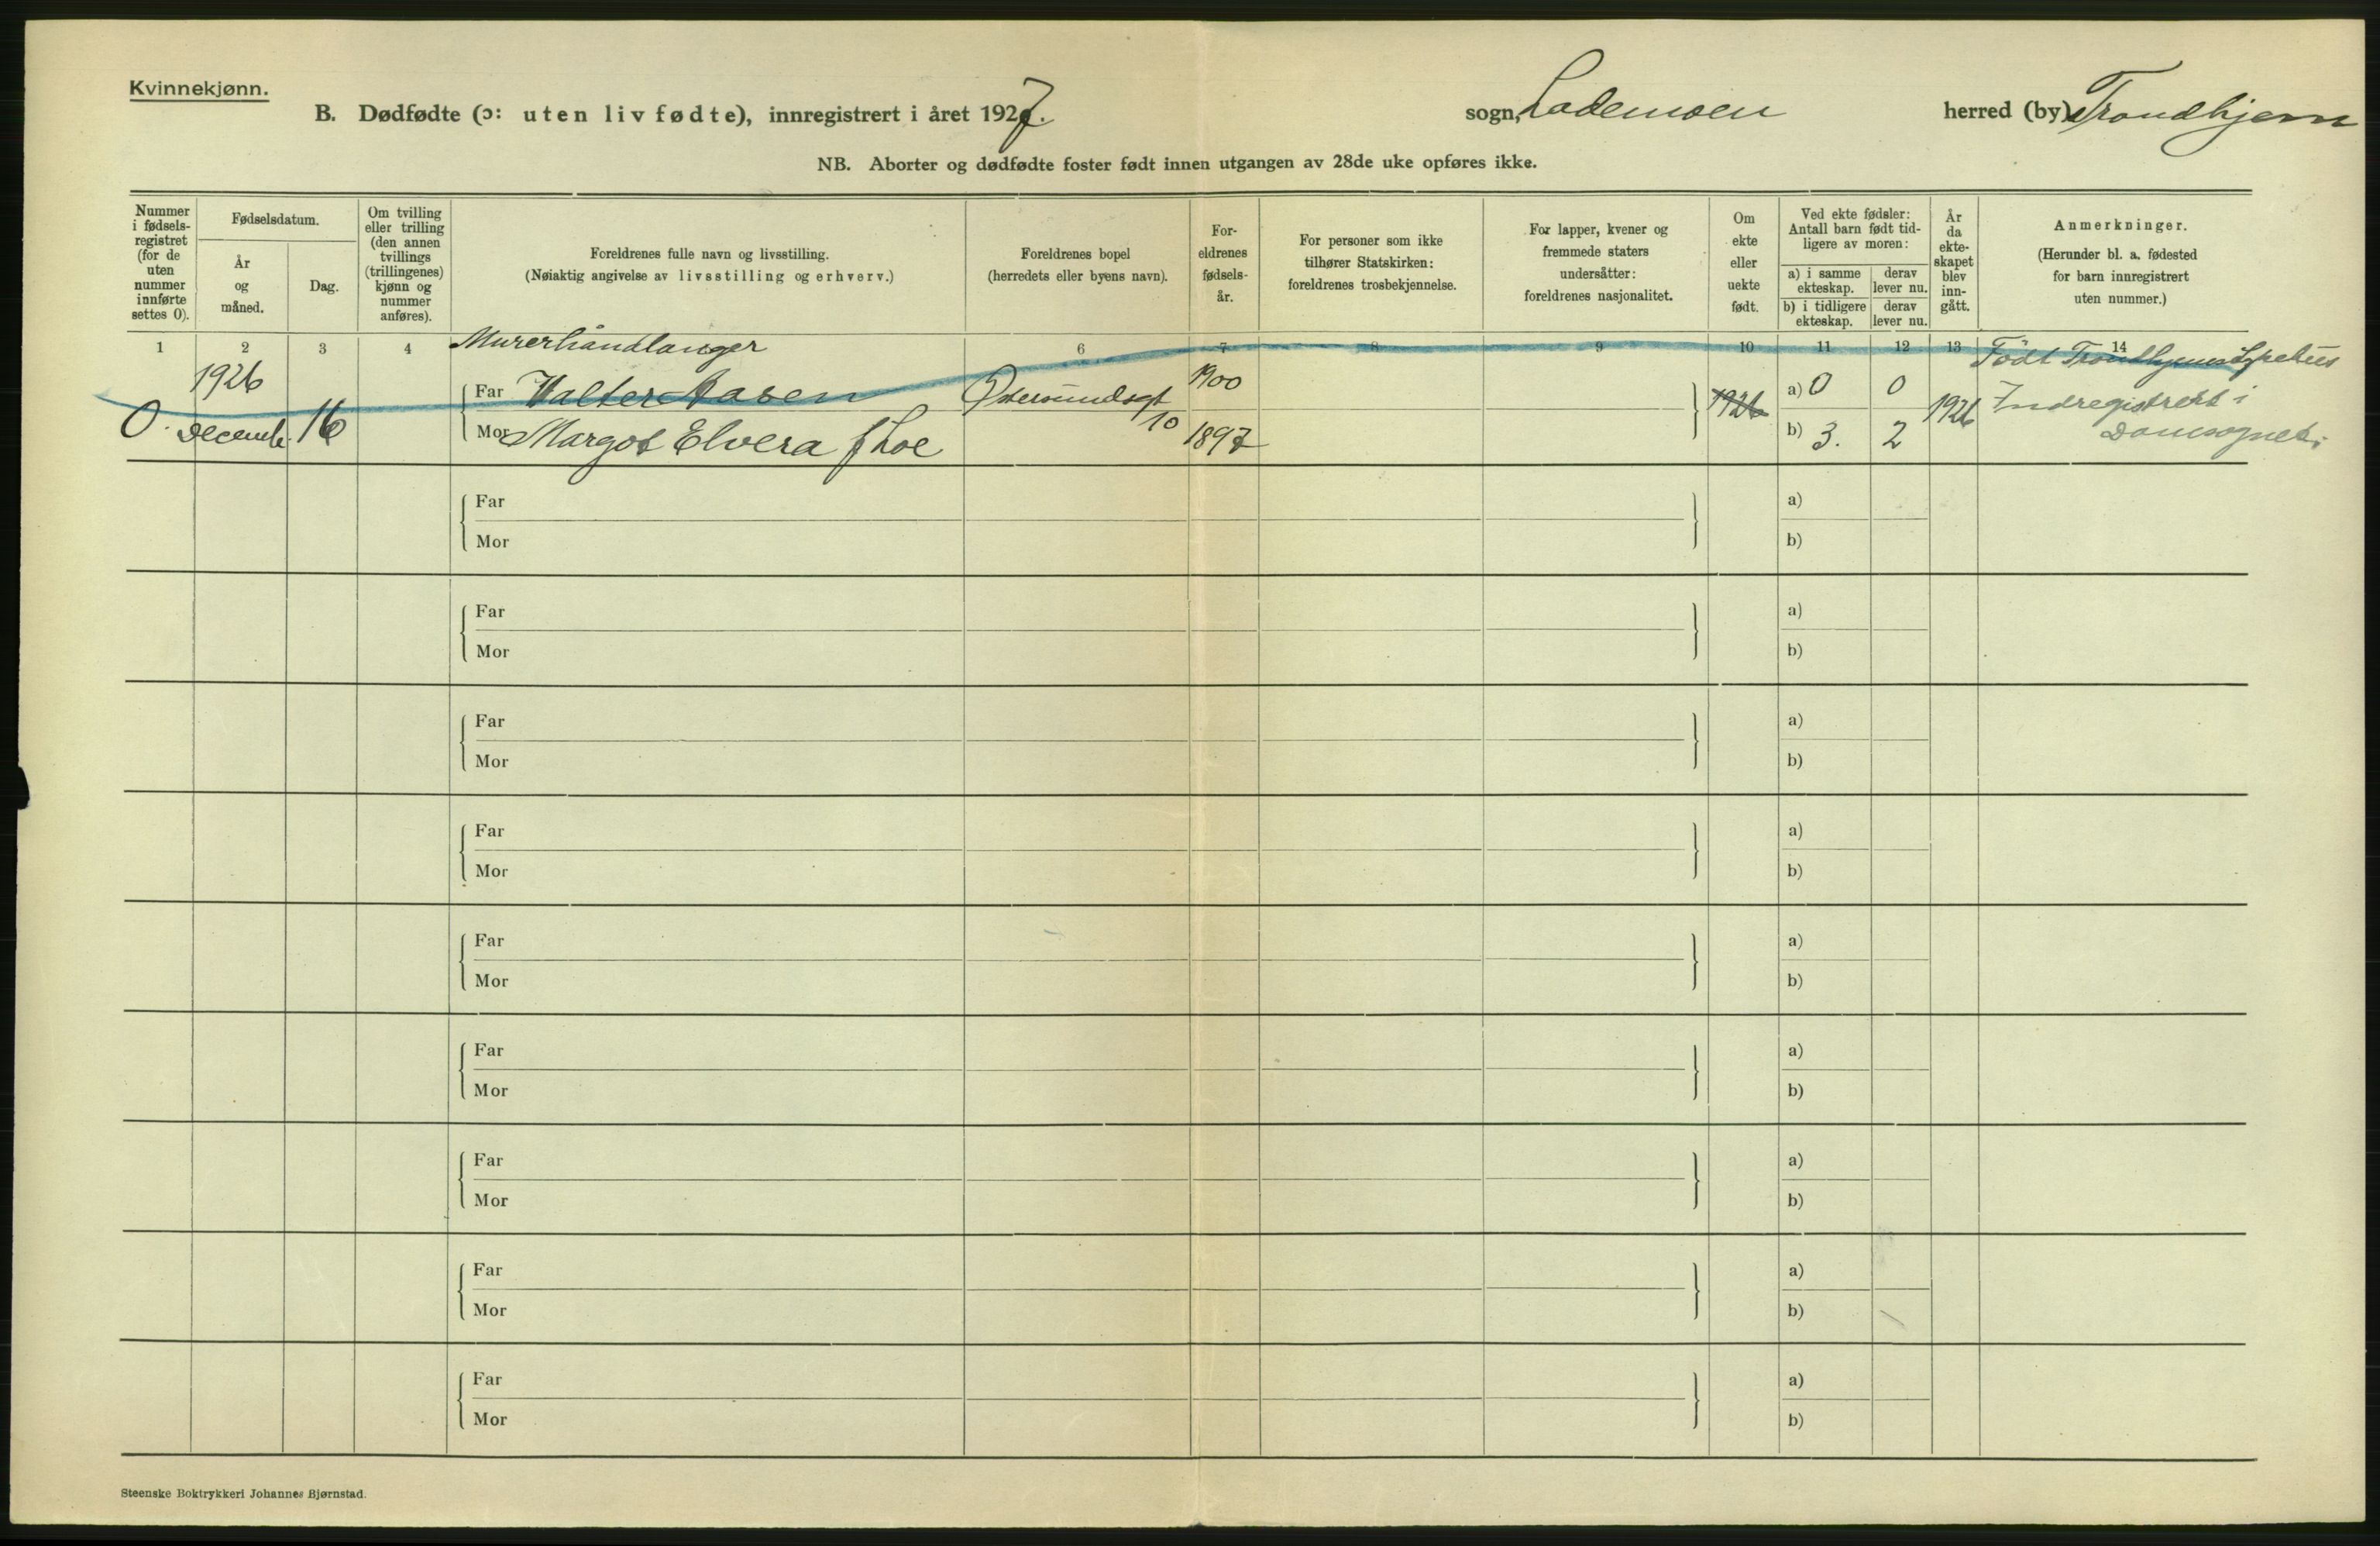 Kvinnekjønn.
B. Dødfødte (ɔ: uten liv fødte), innregistrert i året 1927. sogn, Lademoen herred (by) Trondhjem
NB. Aborter og dødfødte foster født innen utgangen av 28de uke opføres ikke.
Nummer i fødsels-registret (for de uten nummer innførte settes 0).
Fødselsdatum.
År og måned.
Dag.
Om tvilling eller trilling (den annen tvillings (trillingenes) kjønn og nummer anføres).
Foreldrenes fulle navn og livsstilling.
(Nøiaktig angivelse av livsstilling og erhverv.)
Foreldrenes bopel
(herredets eller byens navn).
For-eldrenes fødsels-år.
For personer som ikke tilhører Statskirken: foreldrenes trosbekjennelse.
For lapper, kvener og fremmede staters undersåtter: foreldrenes nasjonalitet.
Om ekte eller uekte født.
Ved ekte fødsler: Antall barn født tid-ligere av moren:
a) i samme ekteskap.
derav lever nu.
b) i tidligere ekteskap.
derav lever nu.
År da ekte-skapet blev inn-gått.
Anmerkninger.
(Herunder bl. a. fødested for barn innregistrert uten nummer.)
1 2 3 4 6 7 8 9 10 11 12 13 14
Murerhåndlanger
Født Trondhjems Sykehus
1926
Far Walter Aasen Østersundsgt 1900 a) 0 0
0. Decemb. 16 10 1926 1926 Indregistrert i
Mor Margot Elvera f Loe 1897 b) 3. 2 Domsognet.
Far a)
Mor b)
Far a)
Mor b)
Far a)
Mor b)
Far a)
Mor b)
Far a)
Mor b)
Far a)
Mor b)
Far a)
Mor b)
Far a)
Mor b)
Far a)
Mor b)
Steenske Boktrykkeri Johannes Bjørnstad.